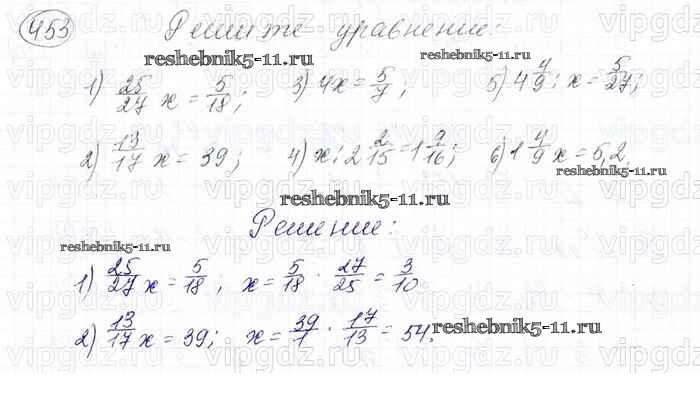 453 Решите уравнение:
reshebnik5-11.ru reshebnik5-11.ru
1) 25/27 x = 5/18; 3) 4x = 5/7; 5) 4 4/9 : x = 5/27;
2) 13/17 x = 39; 4) x : 2 2/15 = 1 9/16; 6) 1 4/9 x = 5,2.
reshebnik5-11.ru
Решение:
reshebnik5-11.ru
1) 25/27 x = 5/18; x = 5/18 · 27/25 = 3/10
2) 13/17 x = 39; x = 39/1 · 17/13 = 54. reshebnik5-11.ru
vipgdz.ru